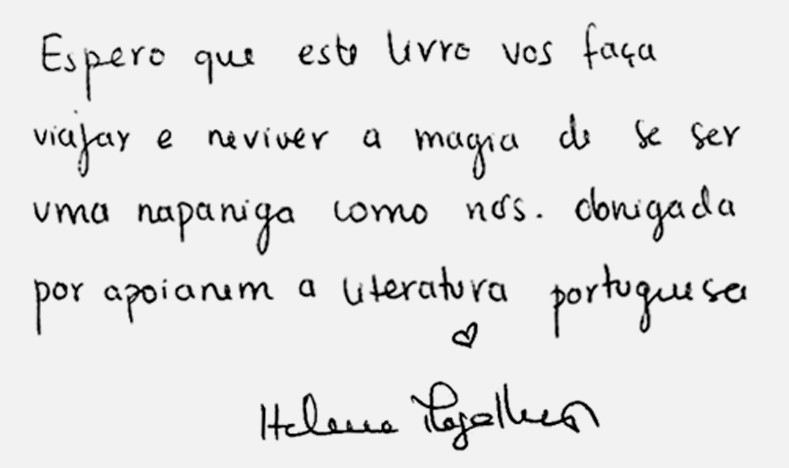 Espero que este livro vos faça
viajar e reviver a magia de se ser
uma rapariga como nós. obrigada
por apoiarem a literatura portuguesa
♡
Helena Magalhães